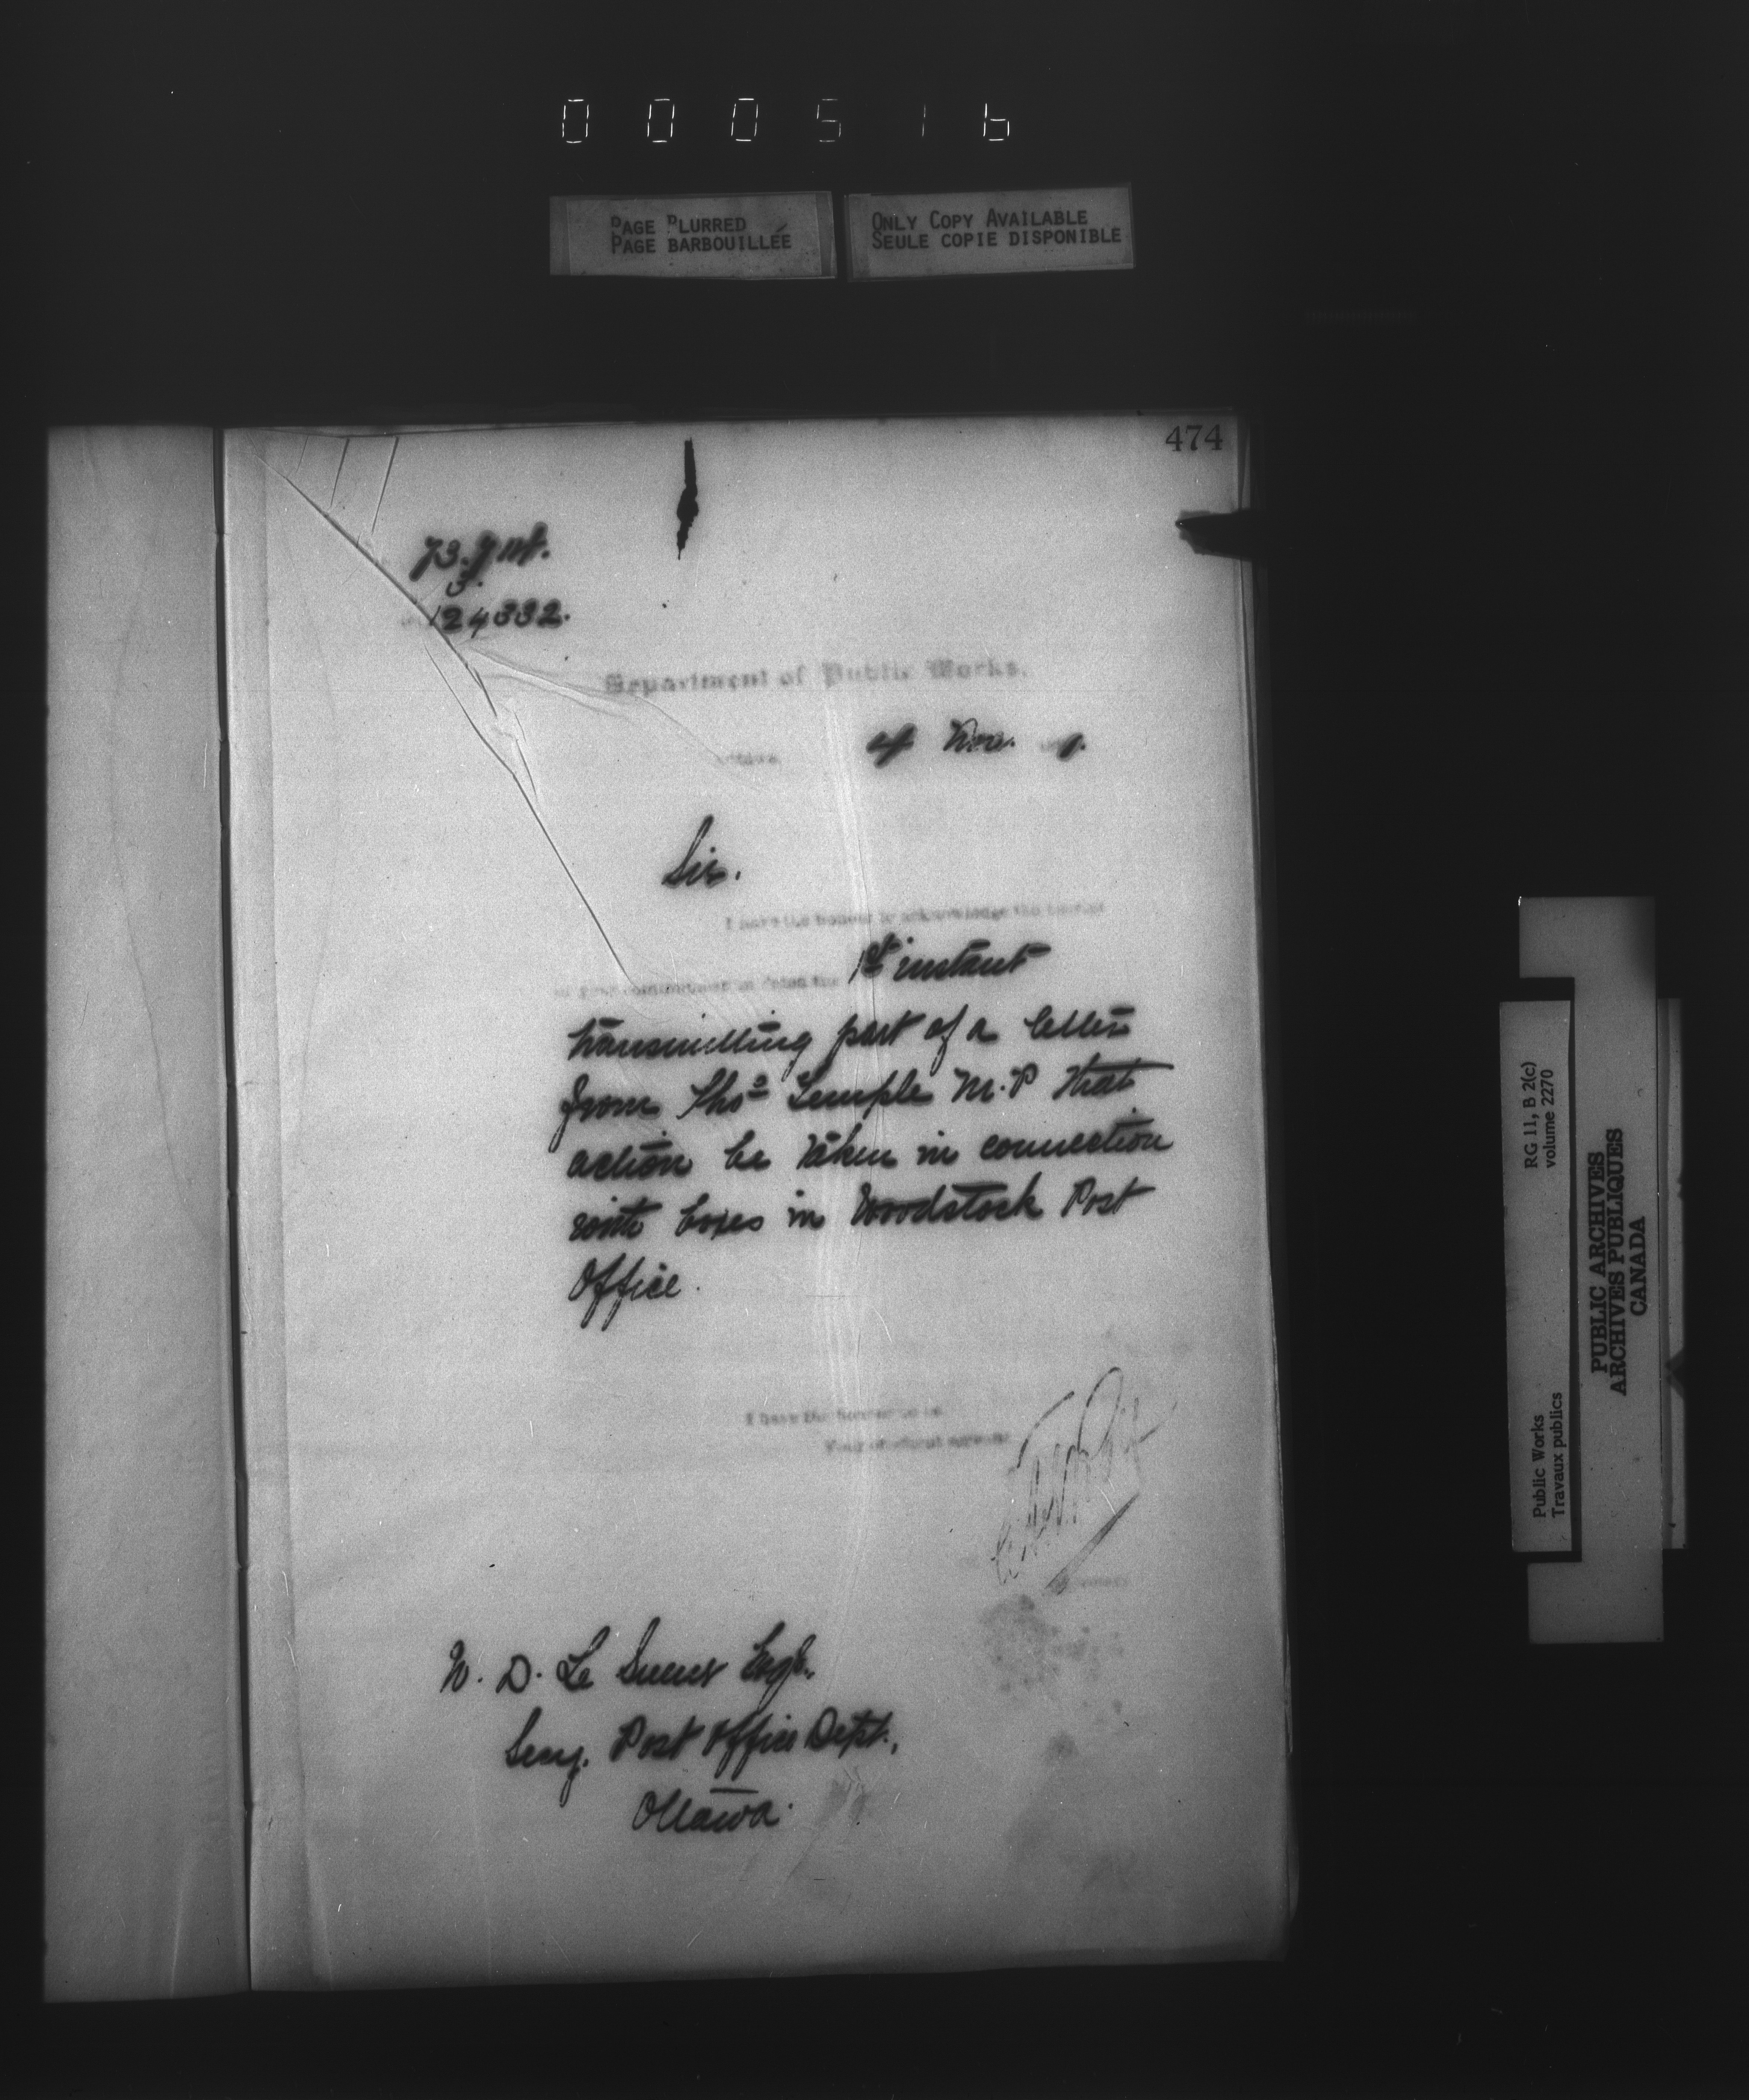 000516
PAGE BLURRED
PAGE BARBOUILLÉE
ONLY COPY AVAILABLE
SEULE COPIE DISPONIBLE
474
124332.
Department of Public Works.
Ottawa, 4 Nov.
Sir.
I have the honour to acknowledge the receipt
of your communication dated the 1st instant
transmitting part of a letter
from Thos Temple M.P that
action be taken in connection
with boxes in Woodstock Post
Office.
I have the honour to be
Your obedient servant
Secretary
W. D. Le Sueur Esqr.
Secy. Post Office Dept.,
Ottawa.
RG 11, B 2(c)
volume 2270
Public Works
Travaux publics
PUBLIC ARCHIVES
ARCHIVES PUBLIQUES
CANADA